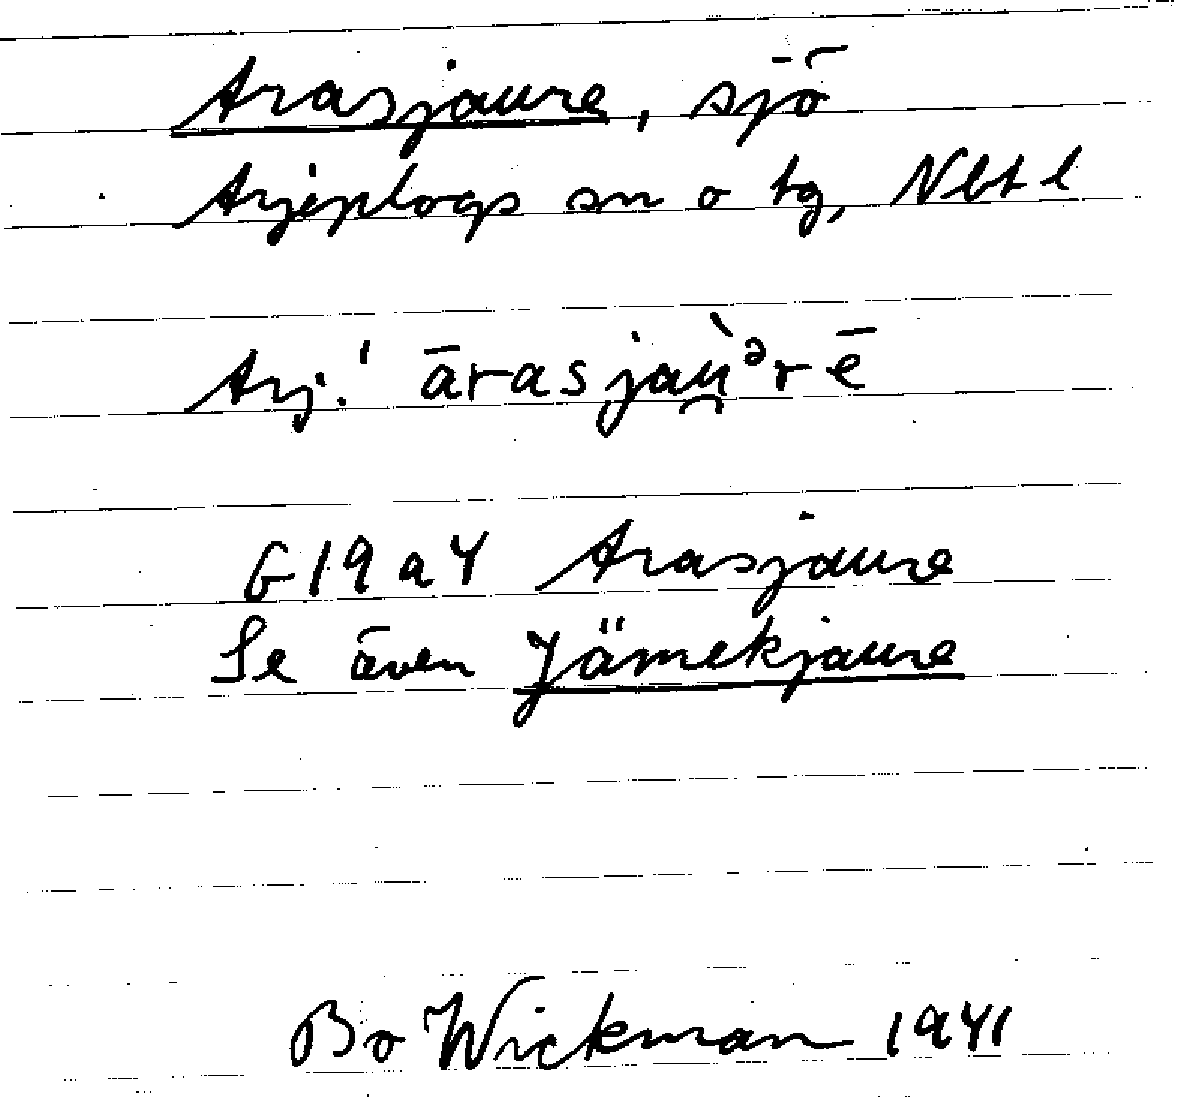 Arasjaure, sjö
Arjeplogs sn o tg, Nbt l
Arj.! ārasjaù̯ᵊrē
G19a4 Arasjaure
Se även Jämekjaure
Bo Wickman 1941